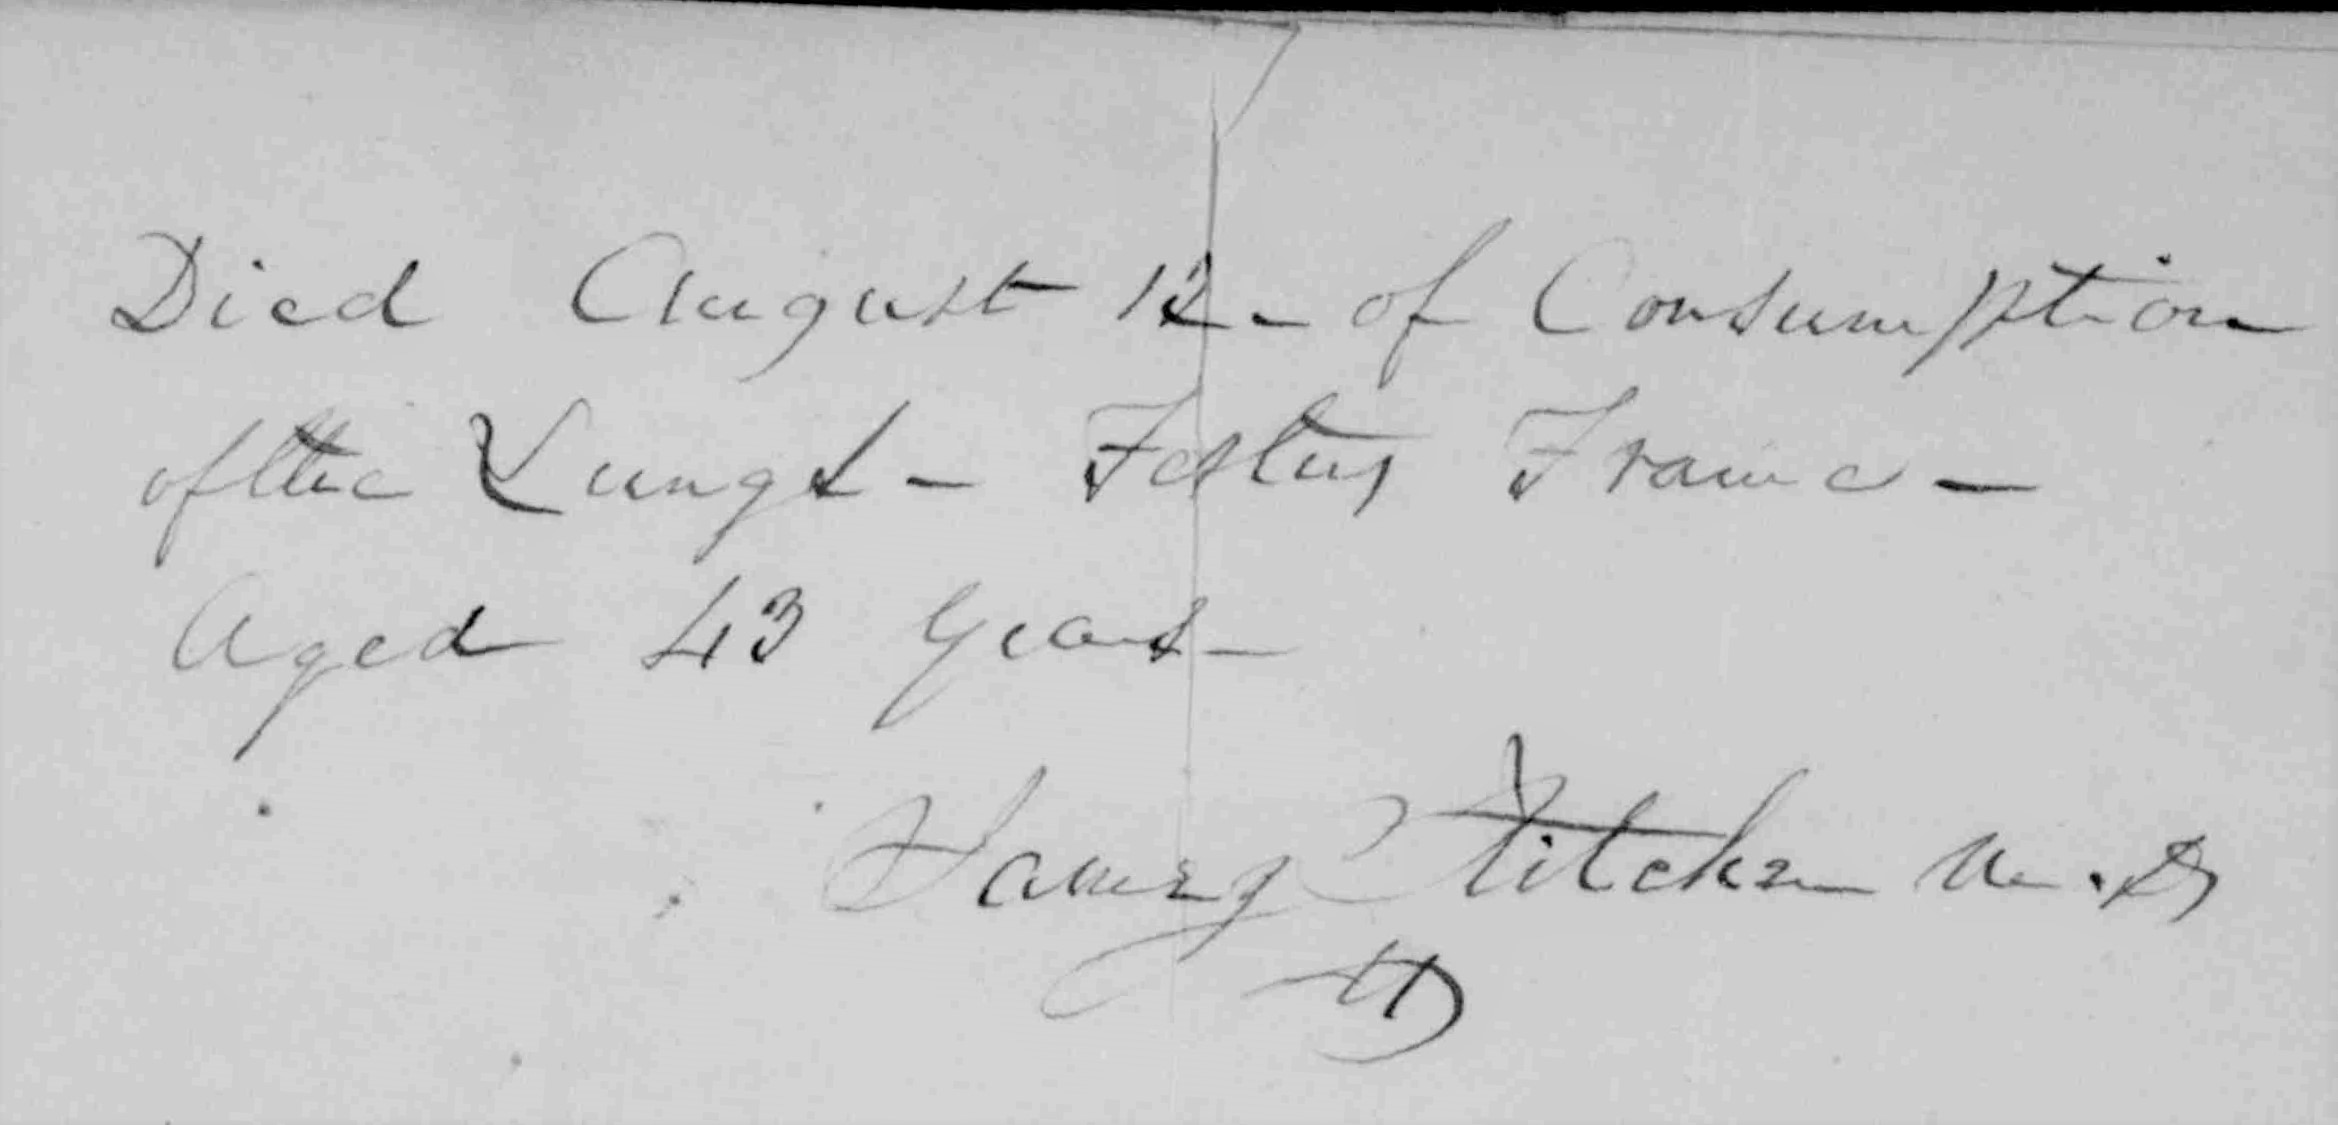 Died August 12 - of Consumption
of the Lungs - Festus Frame -
Aged 43 Years -
James M.D